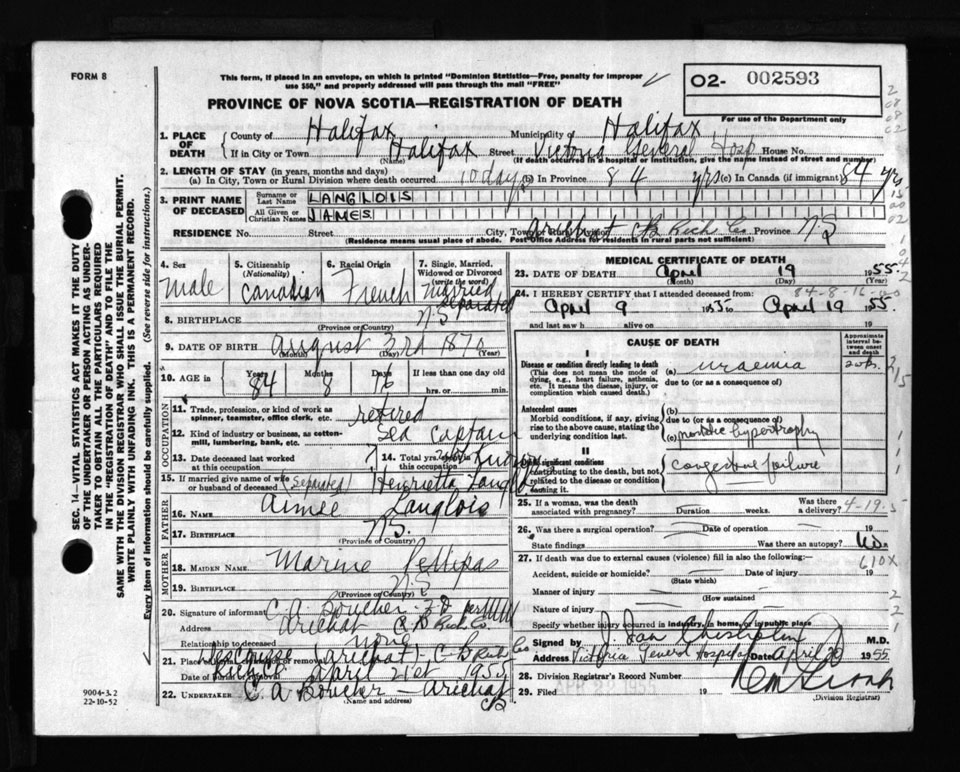 FORM 8
This form, if placed in an envelope, on which is printed "Dominion Statistics—Free, penalty for improper
use $50," and properly addressed will pass through the mail "FREE"
02- 002593
For use of the Department only
PROVINCE OF NOVA SCOTIA—REGISTRATION OF DEATH
1. PLACE OF DEATH County of Halifax Municipality of Halifax
If in City or Town Halifax (Name) Street Victoria General Hosp House No.
(If death occurred in a hospital or institution, give the name instead of street and number)
2. LENGTH OF STAY (in years, months and days)
(a) In City, Town or Rural Division where death occurred 10 days (b) In Province 84 yrs (c) In Canada (if immigrant) 84 yrs
3. PRINT NAME OF DECEASED Surname or Last Name LANGLOIS
All Given or Christian Names JAMES
RESIDENCE No. Street City, Town or Rural Division Arichat CB Rich Co Province NS
(Residence means usual place of abode. Post Office Address for residents in rural parts not sufficient)
4. Sex male
5. Citizenship (Nationality) Canadian
6. Racial Origin French
7. Single, Married, Widowed or Divorced (write the word) Married separated
8. BIRTHPLACE NS (Province or Country)
9. DATE OF BIRTH August 3rd 1870 (Month) (Day) (Year)
10. AGE in Years 84 Months 8 Days 16 If less than one day old hrs. or min.
OCCUPATION
11. Trade, profession, or kind of work as spinner, teamster, office clerk, etc. retired
12. Kind of industry or business, as cotton-mill, lumbering, bank, etc. Sea Captain
13. Date deceased last worked at this occupation ?
14. Total yrs. spent in this occupation not known
15. If married give name of wife or husband of deceased (Separated) Henrietta Langlois
FATHER
16. NAME Aimée Langlois
17. BIRTHPLACE NS. (Province or Country)
MOTHER
18. MAIDEN NAME Marine Pettipas
19. BIRTHPLACE NS (Province or Country)
20. Signature of informant C. A. Boucher F.D. per
Address Arichat C.B. Rich Co.
Relationship to deceased none
21. Place of burial, cremation or removal (Arichat) - C-B Rich Co
Date of burial or removal April 21st 1955
22. UNDERTAKER C A Boucher - Arichat CB
(Name and address)
MEDICAL CERTIFICATE OF DEATH
23. DATE OF DEATH April 19 1955
(Month) (Day) (Year)
84-8-16
24. I HEREBY CERTIFY that I attended deceased from:
April 9 1955 to April 19 1955
and last saw h alive on 19
CAUSE OF DEATH
Approximate interval between onset and death
I
Disease or condition directly leading to death
(This does not mean the mode of dying, e.g., heart failure, asthenia, etc. It means the disease, injury, or complication which caused death.)
(a) uraemia
due to (or as a consequence of)
Antecedent causes
Morbid conditions, if any, giving rise to the above cause, stating the underlying condition last.
(b)
due to (or as a consequence of)
(c) prostatic hypertrophy
II
Other significant conditions contributing to the death, but not related to the disease or condition causing it.
congestive failure
25. If a woman, was the death associated with pregnancy? Duration weeks. Was there a delivery?
4-19-5
26. Was there a surgical operation? Date of operation 19
State findings Was there an autopsy? No
610X
27. If death was due to external causes (violence) fill in also the following:—
Accident, suicide or homicide? Date of injury 19
(State which)
Manner of injury
(How sustained)
Nature of injury
Specify whether injury occurred in industry, in home, or in public place
Signed by J. Ian M.D.
Address Victoria General Hospital Date April 20 1955
28. Division Registrar's Record Number
29. Filed APR 1955 19
(Division Registrar)
SEC. 14—VITAL STATISTICS ACT MAKES IT THE DUTY
OF THE UNDERTAKER OR PERSON ACTING AS UNDER-
TAKER TO OBTAIN ALL THE PARTICULARS REQUIRED
IN THE "REGISTRATION OF DEATH" AND TO FILE THE
SAME WITH THE DIVISION REGISTRAR WHO SHALL ISSUE THE BURIAL PERMIT.
WRITE PLAINLY WITH UNFADING INK. THIS IS A PERMANENT RECORD.
Every item of information should be carefully supplied. (See reverse side for instructions.)
9004-3.2
22-10-52